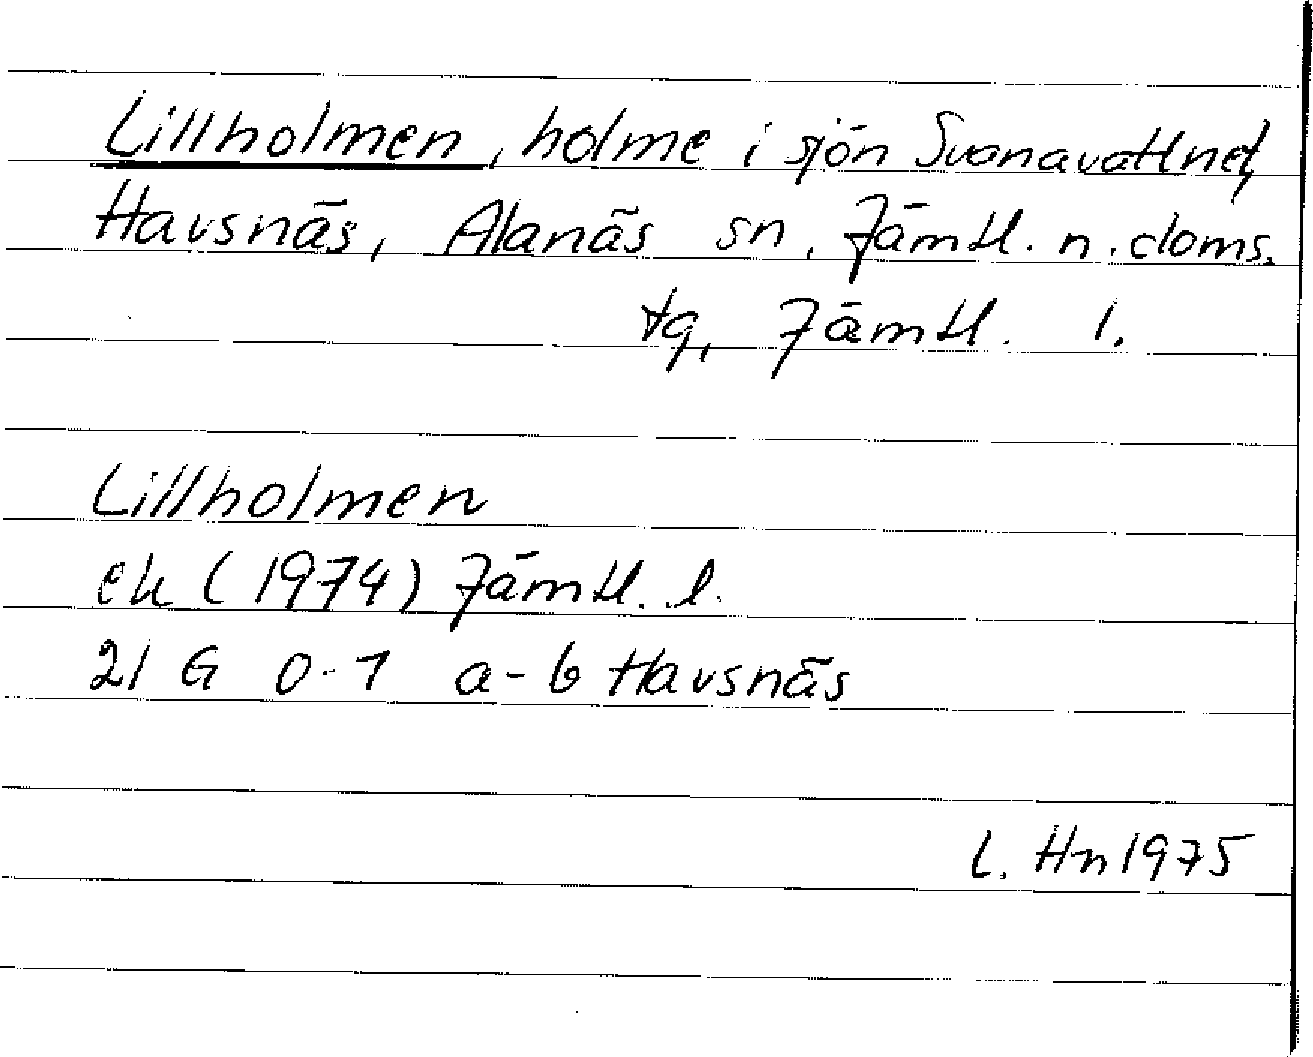 Lillholmen, holme i sjön Svanavattnet,
Havsnäs, Alanäs sn, Jämtl. n. doms.
tg, Jämtl. l.
Lillholmen
ek (1974) Jämtl. l.
21 G 0-1 a-b Havsnäs
L. Hn 1975